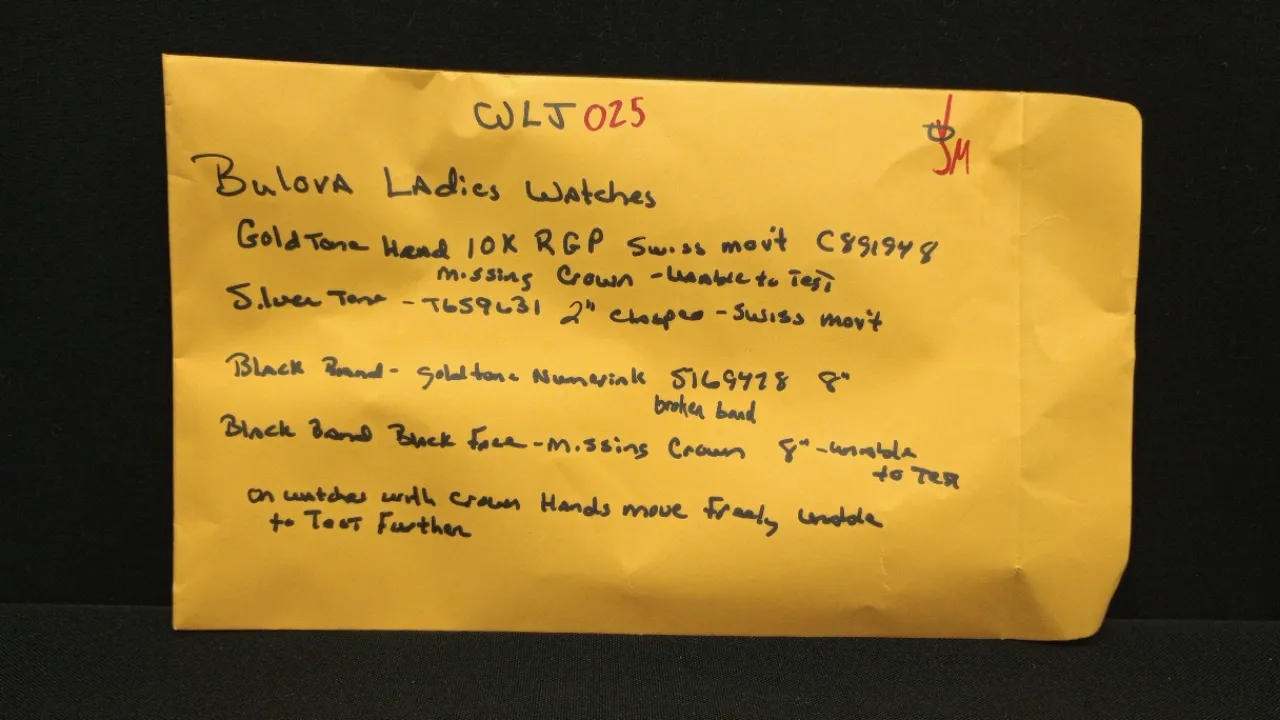 CWLJ 025
JM
Bulova Ladies Watches
Gold Tone Head 10K RGP Swiss mov't C891948
missing Crown - unable to Test
Silver Tone - T659631 2" - Swiss mov't
Black Band - goldtone Numerink 5169478 8"
broken band
Black Band Black Face - missing Crown 8" - unable
to Test
on watches with crown Hands move freely unable
to Test Further